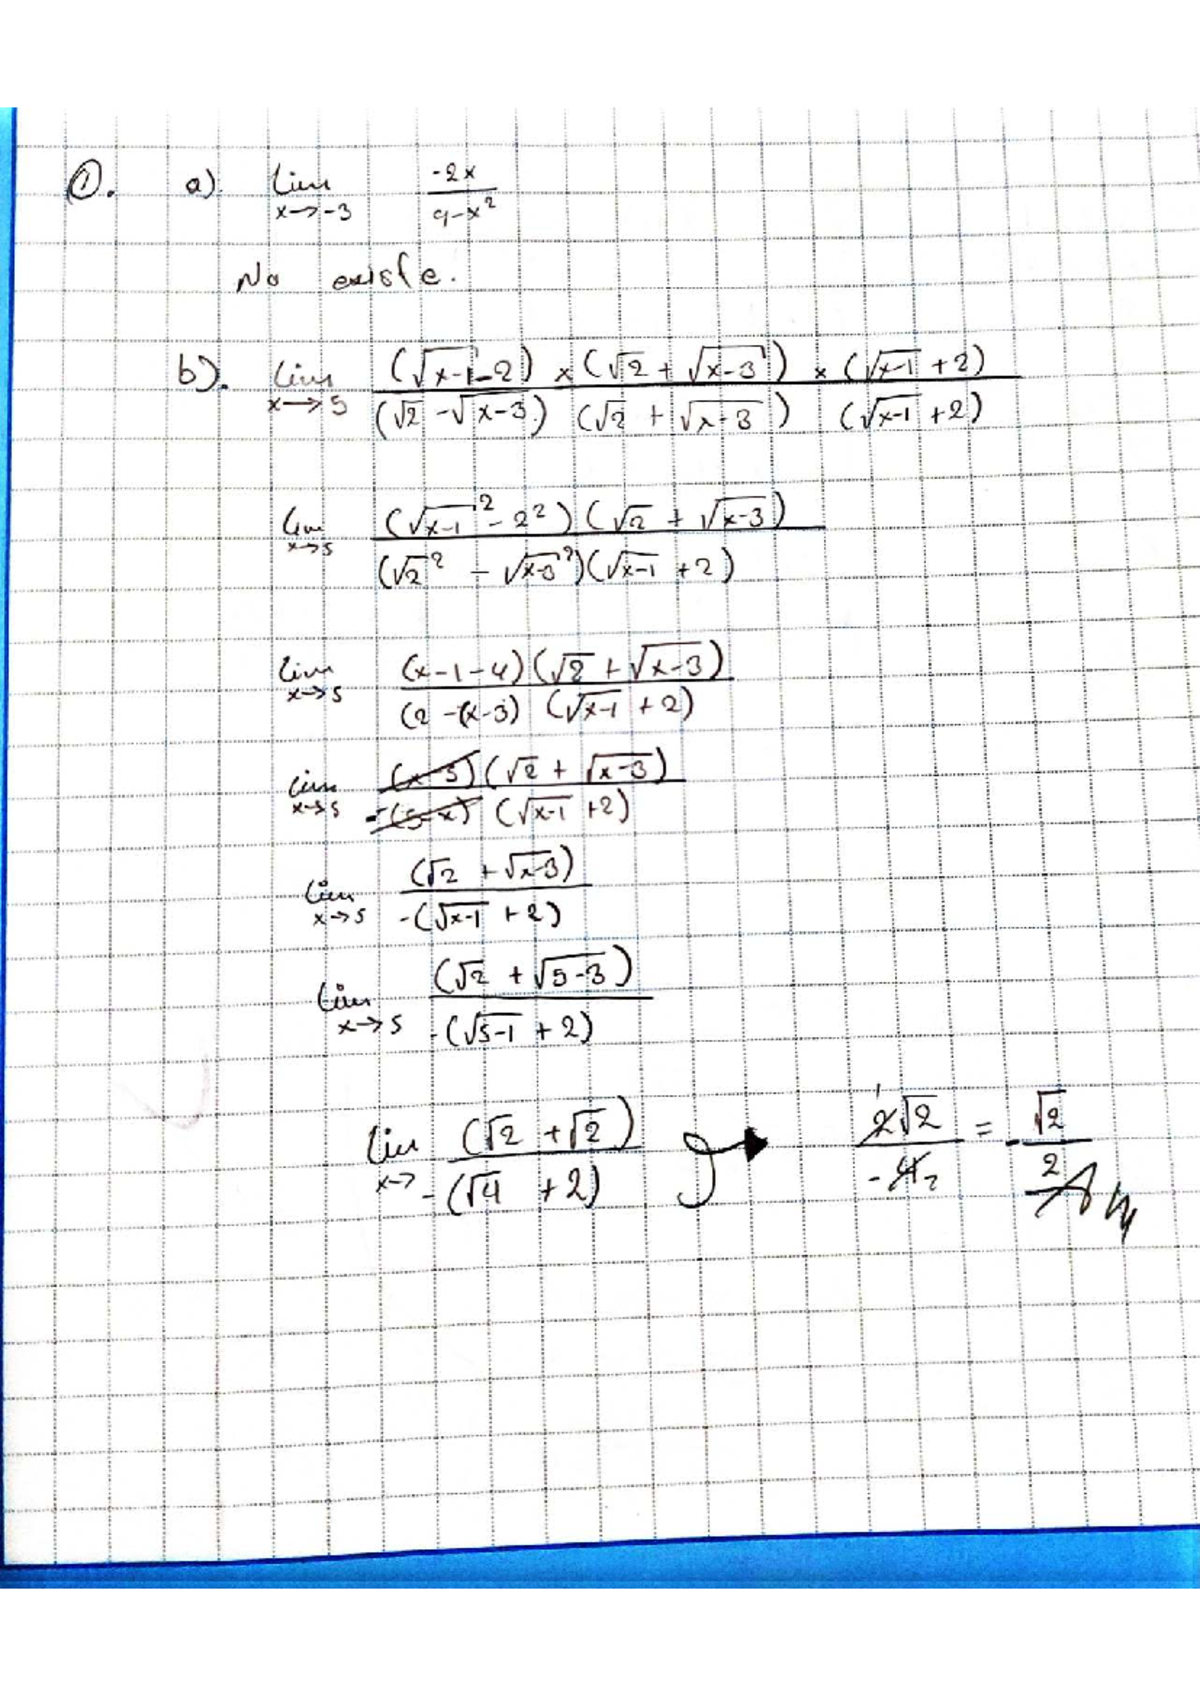 ①. a). Lim x→-3 -2x / 9-x²
No existe.
b). Lim x→5 (√x-1 -2) × (√2 + √x-3) × (√x-1 +2) / (√2 -√x-3) (√2 + √x-3) (√x-1 +2)
Lim x→5 (√x-1² - 2²) (√2 + √x-3) / (√2² - √x-3²)(√x-1 +2)
Lim x→5 (x-1-4)(√2 + √x-3) / (2-(x-3) (√x-1 +2)
Lim x→5 (x-5)(√2 + √x-3) / -(5-x) (√x-1 +2)
Lim x→5 (√2 +√x-3) / -(√x-1 +2)
Lim x→5 (√2 +√5-3) / -(√5-1 +2)
Lim x→ (√2 +√2) / -(√4 +2) 2√2 / -4 = -√2 / 2